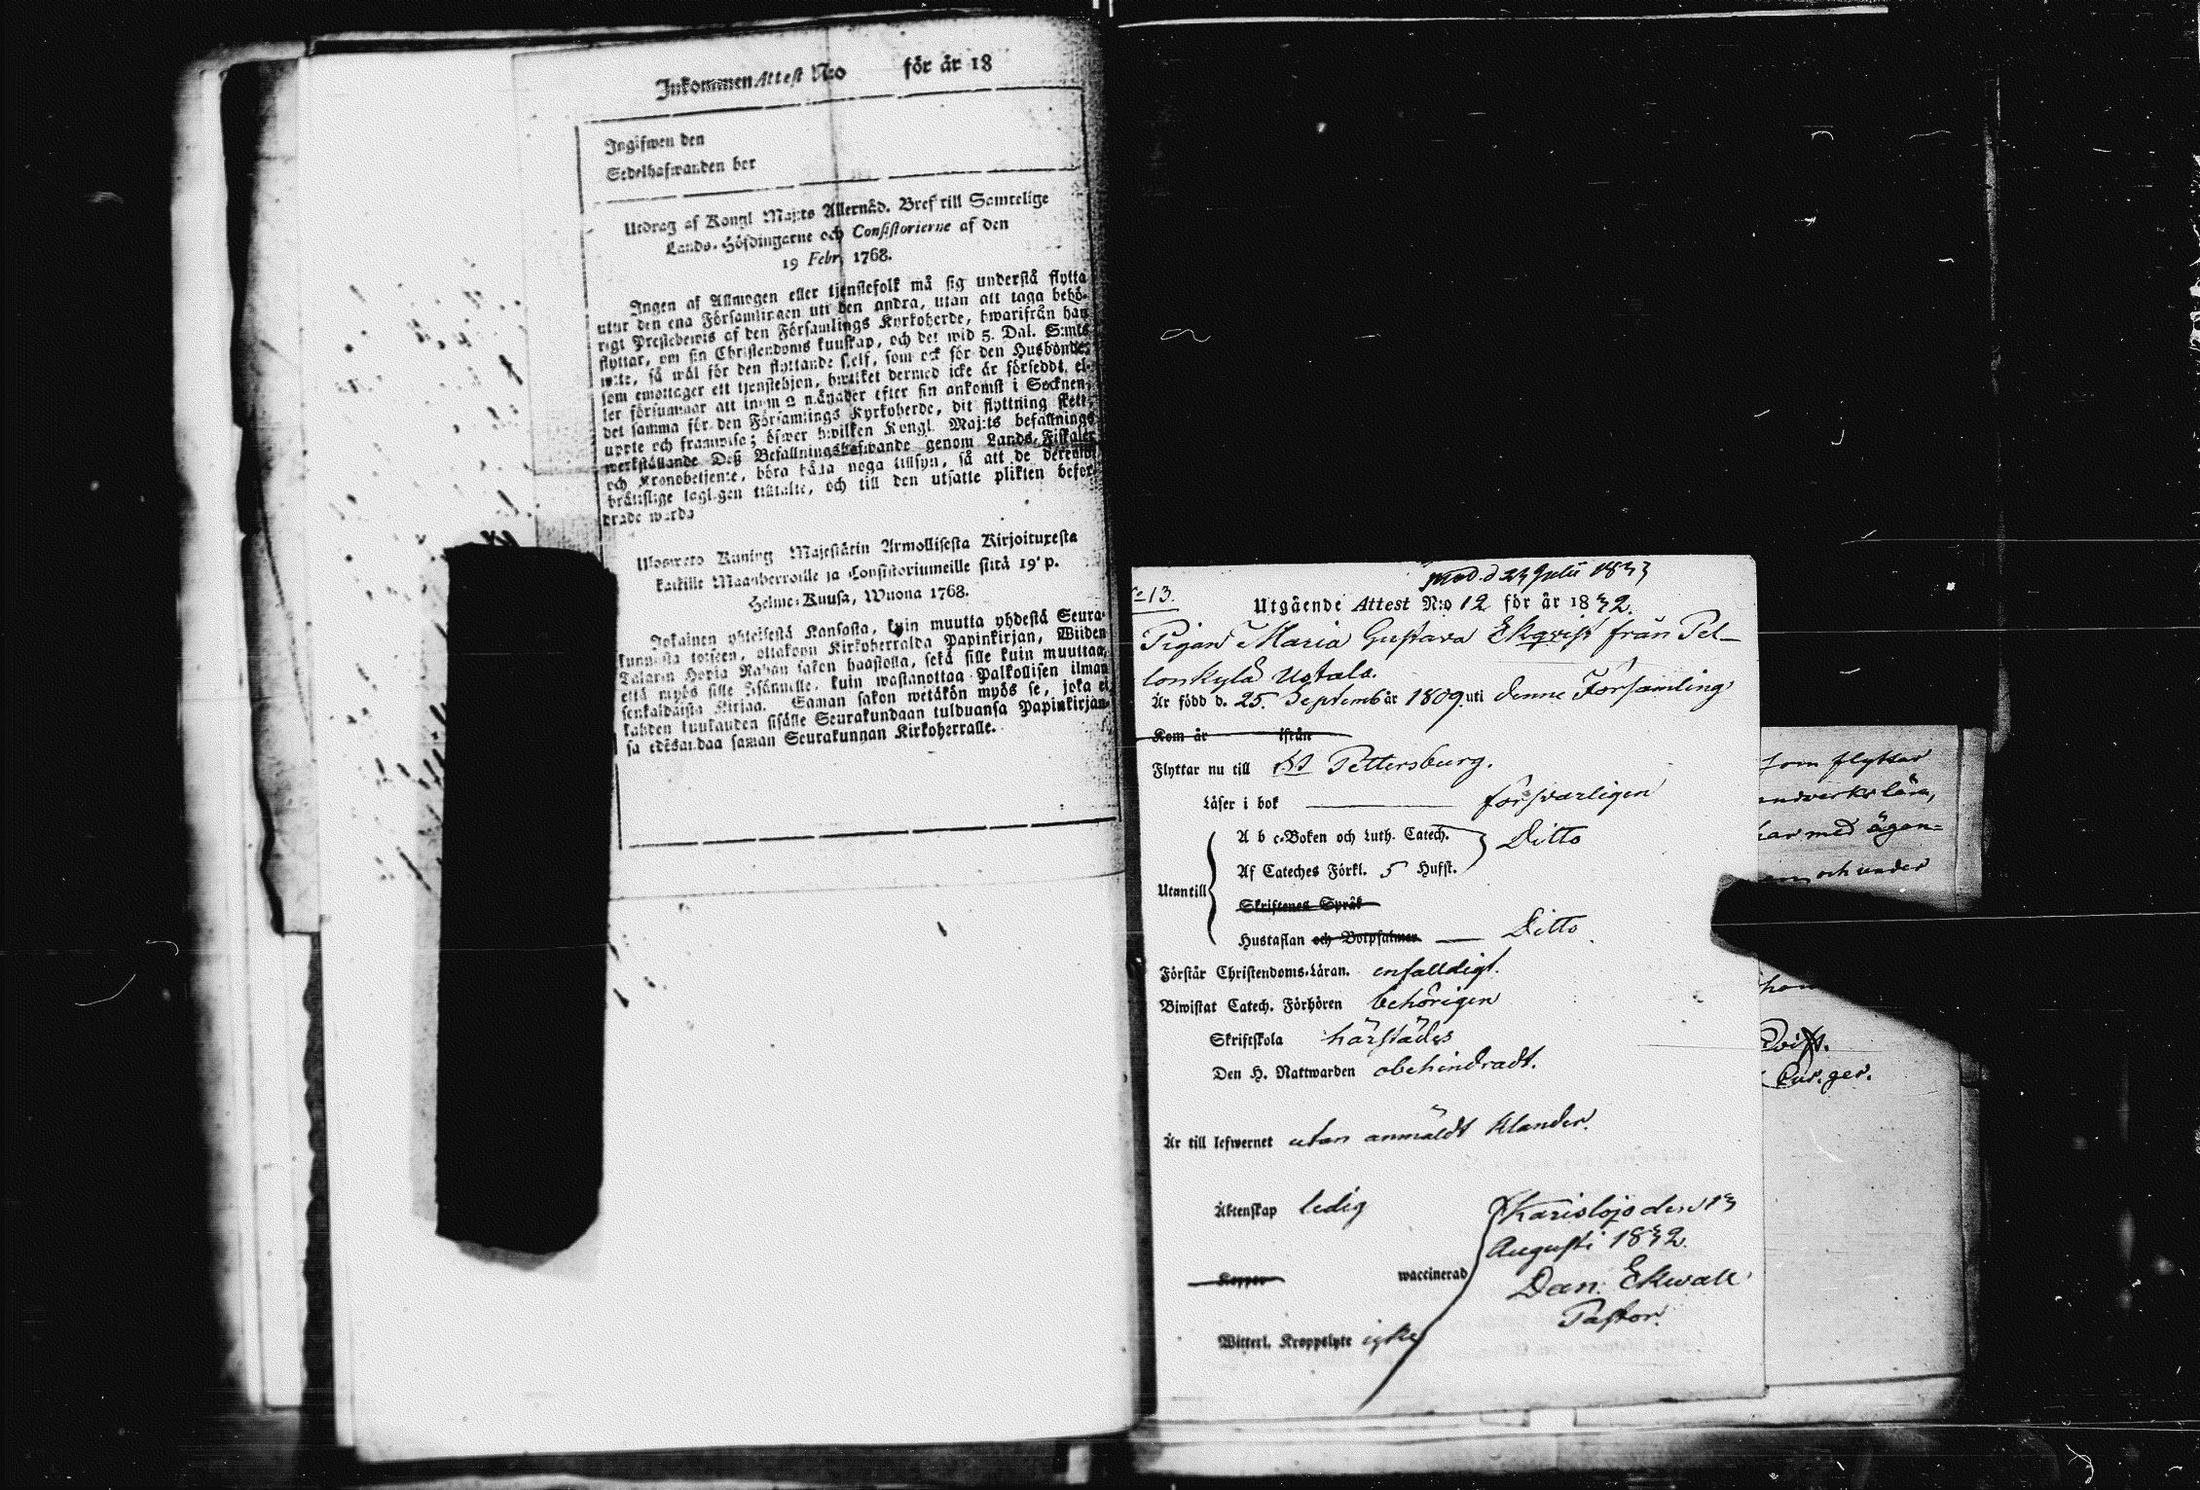 Inkommen Attest N:o för år 18
Ingifwen den
Sedelhafwanden ber
Utdrag af Kongl Maj:ts Allernåd. Bref till Samtelige
Lands-Höfdingarne och Consistorierne af den
19 Febr. 1768.
Ingen af Allmogen eller tjenstefolk må sig understå flytta
utur den ena Församlingen uti den andra, utan att taga behö-
rigt Prestebewis af den Församlings Kyrkoherde, hwarifrån han
flyttar, om sin Christendoms kunskap, och det wid 5. Dal. S:mts
wite, så wäl för den flyttande sjelf, som ock för den Husbonde,
som emottager ett tjenstehjon, hwilket dermed icke är försedt, el-
ler försummar att inom 2 månader efter sin ankomst i Socknen,
det samma för den Församlings Kyrkoherde, dit flyttning skett,
uppte och framwisa; öfwer hwilken Kongl. Maj:ts befallnings
werkställande Deß Befallningshafwande genom Lands-Fiskaler
och Kronobetjente, böra hålla noga tillsyn, så att de
bråttslige lagligen tilltalte, och till den utsatte plikten befor-
drade warda
Ulosweto Kuning Majestätin Armollisesta Kirjoituxesta
kaikille Maanherroille ja Consistoriumeille siitä 19 p.
Helme-Kuusa, Wuona 1768.
Jokainen yhteisestä Kansosta, kuin muutta yhdestä Seura-
kunnasta toiseen, ottakoon Kirkoherralda Papinkirjan, Wiiden
Talarin Hopia Rahan sakon haastolla, sekä sille kuin muuttaa,
että myös sille Isännelle, kuin wastanottaa Palkollisen ilman
senkaldaista Kirjaa. Saman sakon wetäkön myös se, joka ei
kahden kuukauden sisälle Seurakundaan tulduansa Papinkirjan-
sa edesandaa saman Seurakunnan Kirkoherralle.
13.
d 24 Julii 1833
Utgående Attest N:o 12 för år 1832.
Pigan Maria Gustava Ekqvist från Pel-
lonkylä Ustala.
Är född d. 25. September år 1809. uti denne Församling
Kom år ifrån
Flyttar nu till St Pettersburg.
Läser i bok försvarligen
A b c-Boken och Luth. Catech. Ditto
Af Cateches Förkl. 5 Hufst.
Utantill
Skriftenes Språk
Hustaflan och Botpsalmer Ditto
Förstår Christendoms-Läran. enfalldigt.
Biwistat Catech. Förhören behörigen
Skriftskola härstädes
Den H. Nattwarden obehindradt.
Är till lefwernet utan anmäldt klander.
Äktenskap ledig
Karislojo den 13
Augusti 1832.
Koppor waccinerad
Dan. Ekwall
Pastor.
Witterl. Kroppslyte icke
som flyttar
har med ägan-
och under